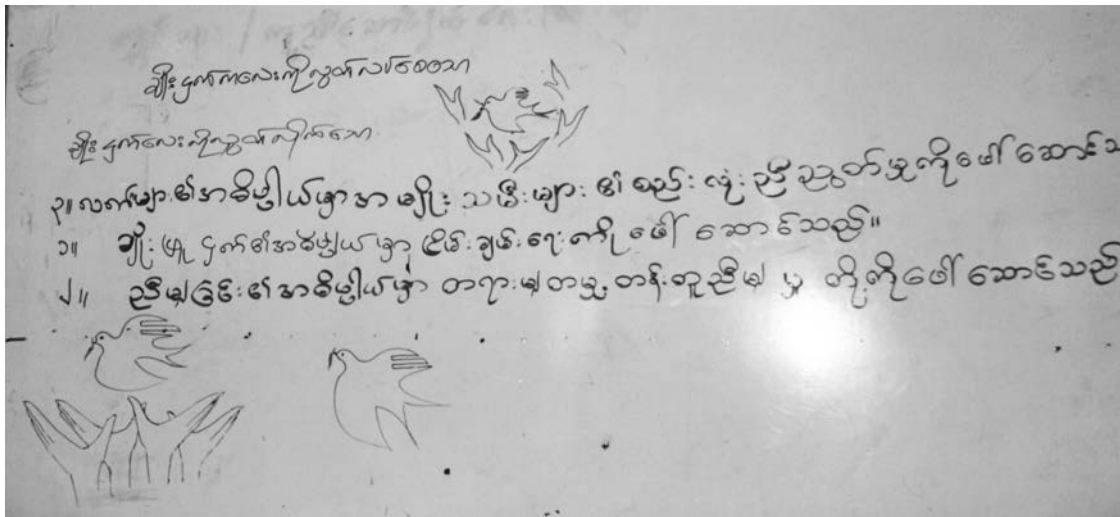 ချိုးငှက်ကလေးကိုလွှတ်လပ်စေသော
ချိုးငှက်လေးကိုလွှတ်လိုက်သော
၃။ လက်များ၏အဓိပ္ပါယ်မှာအမျိုးသမီးများ၏စည်းလုံးညီညွတ်မှုကိုဖေါ်ဆောင်သ
၁။ ချိုးဖြူငှက်၏အဓိပ္ပါယ်မှာငြိမ်းချမ်းရေးကိုဖေါ်ဆောင်သည်။
၂။ ညီမျှခြင်း၏အဓိပ္ပါယ်မှာ တရားမျှတမှု့ တန်းတူညီမျှမှု တို့ကိုဖေါ်ဆောင်သည်